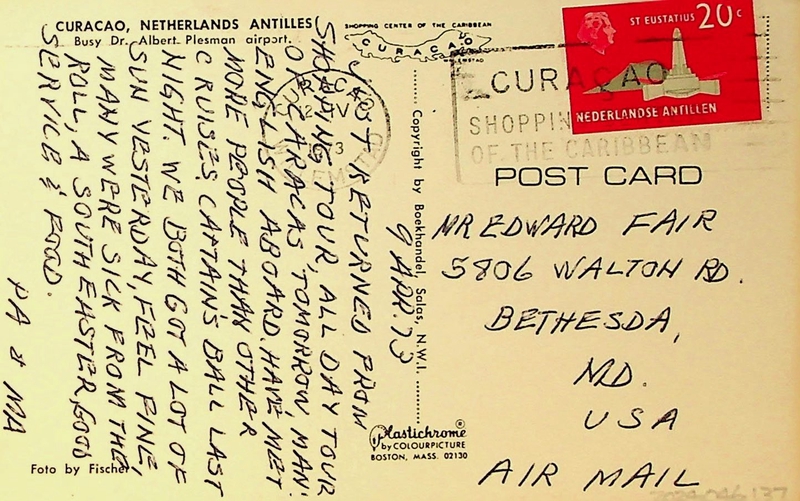 CURACAO, NETHERLANDS ANTILLES
Busy Dr. Albert Plesman airport.
SHOPPING CENTER OF THE CARIBBEAN
CURACAO
WILLEMSTAD
ST EUSTATIUS 20c
NEDERLANDSE ANTILLEN
CURAÇAO
SHOPPIN
OF THE CARIBBEAN
POST CARD
9 APR. 73
JUST RETURNED FROM
SHOPPING TOUR, ALL DAY TOUR
OF CARACAS, TOMORROW, MAN:
ENGLISH ABOARD, HAVE MET
MORE PEOPLE THAN OTHER
CRUISES. CAPTAIN'S BALL LAST
NIGHT. WE BOTH GOT A LOT OF
SUN YESTERDAY, FEEL FINE,
MANY WERE SICK FROM THE
ROLL, A SOUTHEASTER, GOOD
SERVICE & FOOD.
PA & MA
MR EDWARD FAIR
5806 WALTON RD.
BETHESDA,
MD.
USA
AIR MAIL
Copyright by Boekhandel, Salas, N.W.I.
Plastichrome®
by COLOURPICTURE
BOSTON, MASS. 02130
Foto by Fischer